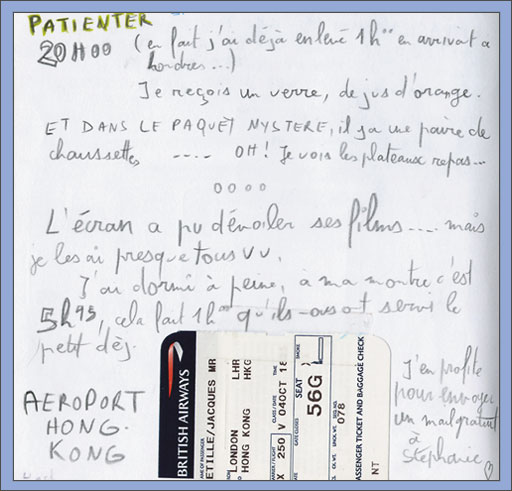 PATIENTER
20H00 (en fait j'ai déjà enlevé 1h00 en arrivant à
Londres...)
Je reçois un verre, de jus d'orange.
ET DANS LE PAQUET MYSTERE, il y a une paire de
chaussettes .... OH! Je vois les plateaux repas...
oooo
L'écran a pu dévoiler ses films.... mais
je les ai presque tous vu.
J'ai dormi à peine, à ma montre c'est
5h45, cela fait 1h00 qu'ils ont servi le
petit déj.
AEROPORT
HONG.
KONG
J'en profite
pour envoyer
un mail gratuit
à
Stéphanie
BRITISH AIRWAYS
NAME OF PASSENGER
ETILLE/JACQUES MR
LONDON LHR
HONG KONG HKG
CARRIER/FLIGHT CLASS/DATE TIME
X 250 V 04OCT 18
GATE CLOSES SEAT SMOKE
56G
SEQ. NO.
078
PASSENGER TICKET AND BAGGAGE CHECK
NT